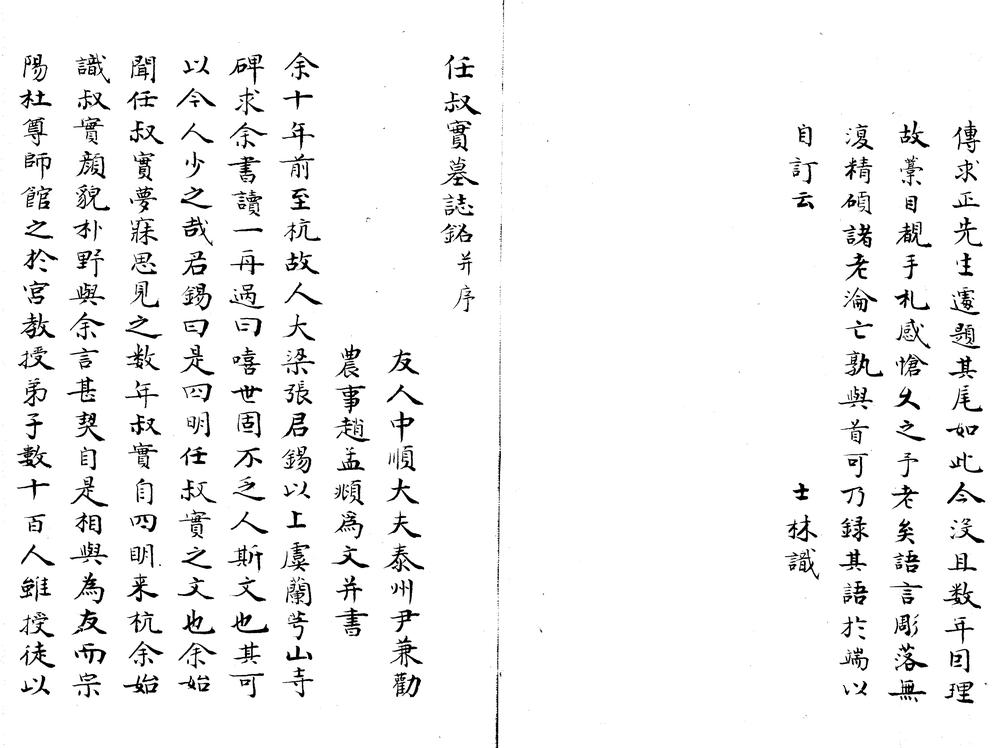 傳求正先生遽題其尾如此今沒且数年囙理
故藁目覩手札感愴久之予老矣語言彫落無
復精碩諸老淪亡孰與首可乃録其語於端以
自訂云　士林識
任叔實墓誌銘并序
友人中順大夫泰州尹兼勸
農事趙孟頫爲文并書
余十年前至杭故人大梁張君錫以上虞蘭芎山寺
碑求余書讀一再過曰嘻世固不乏人斯文也其可
以今人少之哉君錫曰是四明任叔實之文也余始
聞任叔實夢寐思見之数年叔實自四明来杭余始
識叔實顔貌朴野與余言甚契自是相與為友而宗
陽杜尊師館之於宮教授弟子數十百人雖授徒以